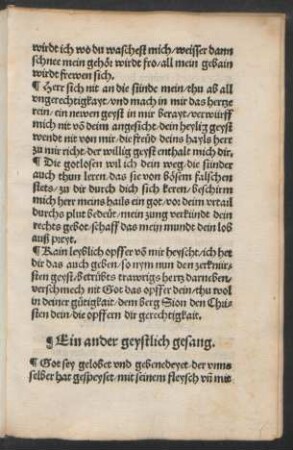 wirdt ich wo du waschest mich/weisser dann
schnee mein gehör wirdt fro/all mein gebain
wirdt frewen sich.
¶ Herr sich nit an die sünde mein/thu ab all
vngerechtigkayt/vnd mach in mir das hertze
rein/ein newen geyst in mir berayt/verwürff
mich nit vō deim angesicht/dein heylig geyst
wende nit von mir/die freüd deins hayls herr
zu mir richt/der willig geyst enthalt mich dir.
¶ Die gotlosen wil ich dein weg/die sünder
auch thun leren/das sie von bösem falschen
stets/zu dir durch dich sich keren/beschirm
mich herr meins hails ein got/vor dem vrtail
durchs plut bedeüt/mein zung verkündt dein
rechts gebot/schaff das mein mundt dein lob
auß preyt.
¶ Kain leyblich opffer vō mir heyscht/ich het
dir das auch geben/so nym nun den zerknir-
sten geyst/betrübts trawrigs hertz darneben/
verschmech nit Got das opffer dein/thu wol
in deiner gütigkait/dem berg Sion den Chri-
sten dein/die opffern dir gerechtigkait.
¶ Ein ander geystlich gesang.
¶ Got sey gelobet vnd gebenedeyet/der vnns
selber hat gespeyset/mit seinem fleysch vn̄ mit